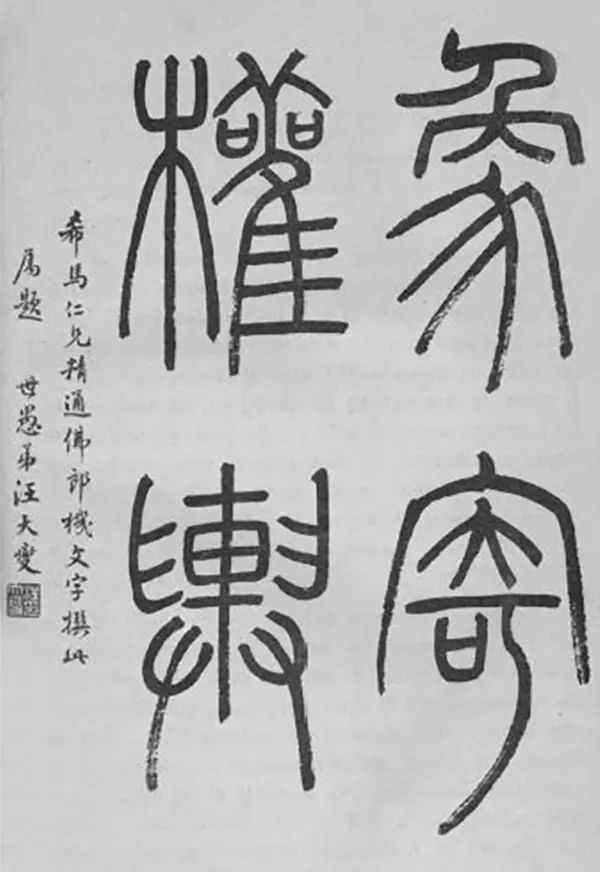 象寄
權輿
希馬仁兄精通佛郎機文字撰此
属題 世愚弟汪大燮